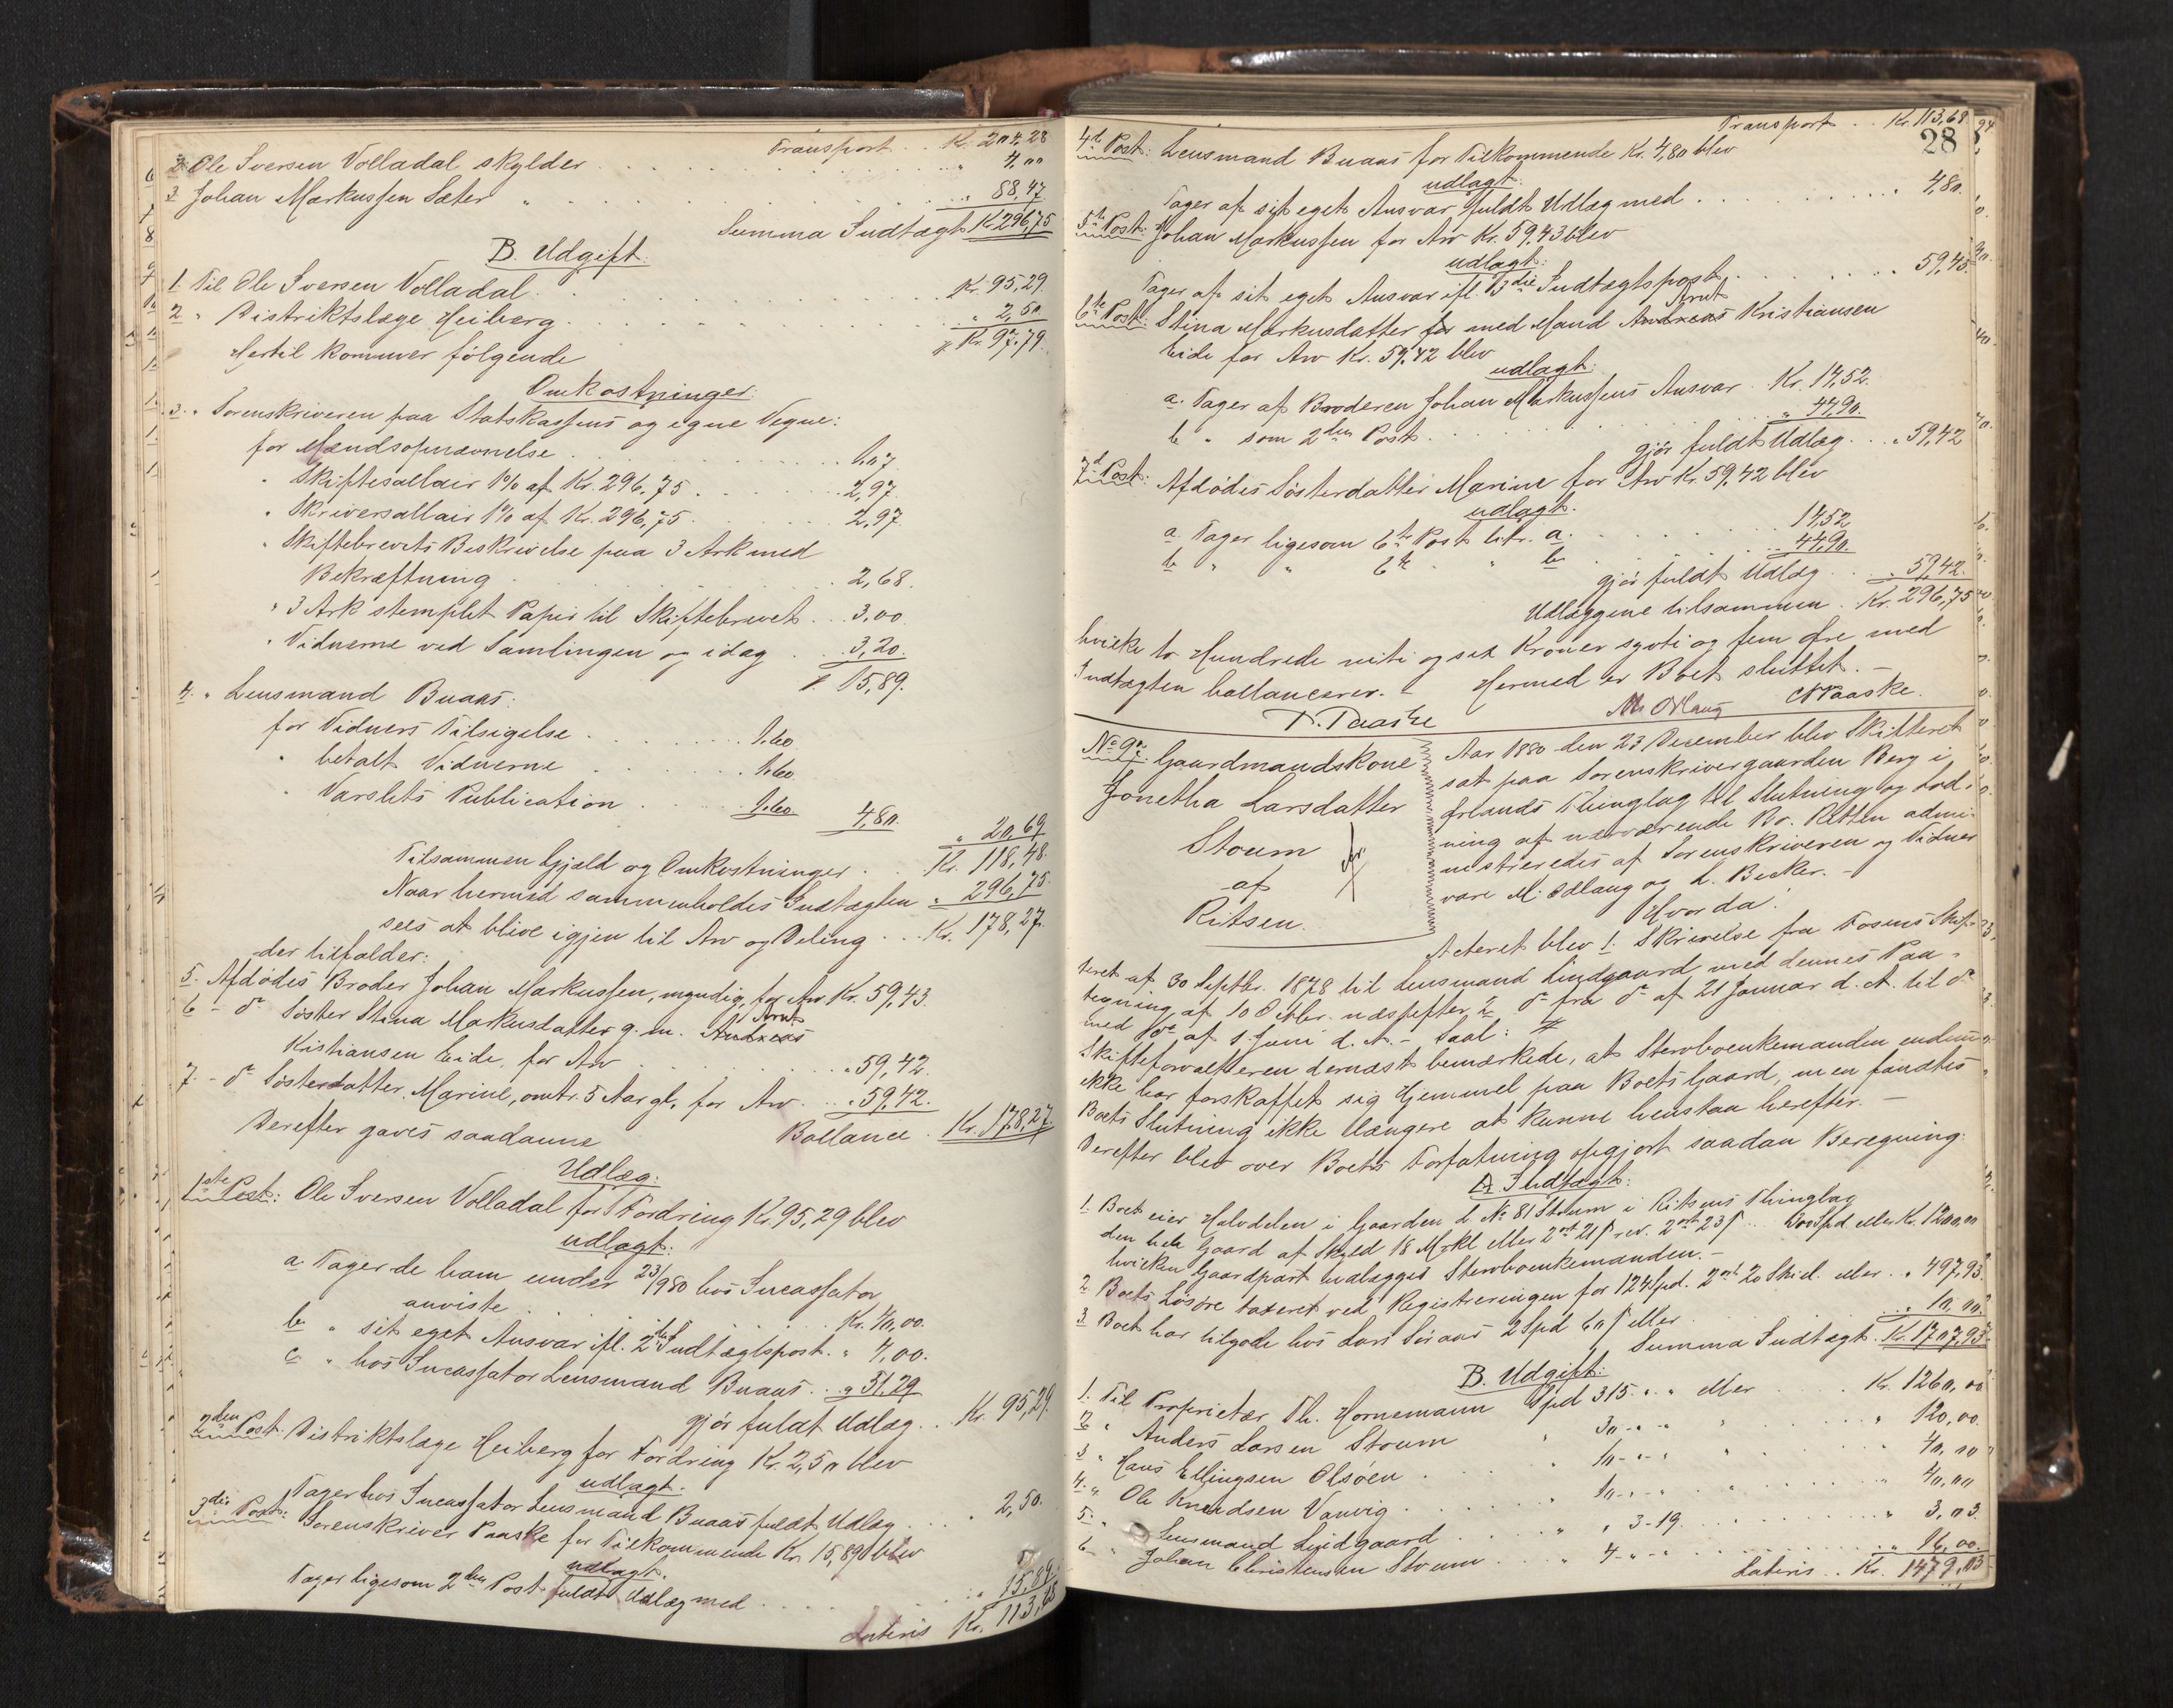 Transport . . Kr. 204,28
2 Ole Iversen Volladal skylder . . . . " 4,00
3 Johan Markussen Sæter " . . . . " 88,47
Summa Indtægt Kr 296,75
B. Udgift:
1 Til Ole Iversen Volladal . . . . Kr. 95,29.
2 " Distriktslæge Heiberg . . . . " 2,50.
Hertil kommer følgende
Kr. 97,79.
Omkostninger:
3. " Sorenskriveren paa Statskassens og egne Vegne:
for Mændsopnævnelse . . . . 1,07
" Skiftesallair 1% af Kr. 296,75 . . . 2,97.
" Skriversallair 1% af Kr. 296,75 . . . 2,97.
" Skiftebrevets Beskrivelse paa 3 Ark med
Bekræftning . . . . 2,68.
" 3 Ark stemplet Papir til Skiftebrevet . . 3,00.
" Vidnerne ved Samlingen og idag . . 3,20.
15,89.
4. " Lensmand Buaas:
for Vidners Tilsigelse . . . . 1.60
" betalt Vidnerne . . . . 1.60
" Varslets Publication . . . 1.60 4,80.
" 20,69
Tilsammen Gjæld og Omkostninger . . Kr. 118,48.
Naar hermed sammenholdes Indtægten " 296,75.
sees at blive igjen til Arv og Deling . . Kr. 178,27.
der tilfalder:
5. Afdødes Broder Johan Markussen, myndig, for Arv Kr. 59,43.
6 - do Søster Stina Markusdatter g. m. Andreas Arnt
Kistiansen Eide, for Arv . . . . " 59,42.
7. - do Søsterdatter Marine, omtr. 5 Aar gl., for Arv . . " 59,42.
Ballance . Kr. 178,27.
Derefter gaves saadanne
Udlæg:
1ste Post: Ole Iversen Volladal for Fordring Kr. 95,29 blev
udlagt:
a. Tager de ham under 23/9 80 hos Incassator
anviste . . . . Kr. 40,00.
b " sit eget Ansvar ifl. 2den Indtægtspost. " 4,00.
c " hos Incassator Lensmand Buaas . . " 51,29
gjør fuldt Udlæg . . Kr. 95,29.
2den Post. Distriktslæge Heiberg for Fordring Kr. 2,50 blev
udlagt.
Tager hos Incassator Lensmand Buaas fuldt Udlæg . . . " 2,50.
3die Post: Sorenskriver Paaske for Tilkommende Kr. 15,89 blev
udlagt.
Tager ligesom 2den Post fuldt Udlæg med . . . . " 15,89.
Lateris Kr. 113,68
Transport . . Kr. 113,68
28
4de Post: Lensmand Buaas for Tilkommende Kr. 4,80 blev
udlagt:
Tager af sit eget Ansvar fuldt Udlæg med . . . . " 4,80.
5te Post: Johan Markussen for Arv Kr. 59,43 blev
udlagt:
Tager af sit eget Ansvar ifl. 3die Indtægtspost . . . . 59,43.
6te Post: Stina Markusdatter med Mand Andreas Arnt Kristiansen
Eide for Arv Kr. 59,42 blev
udlagt:
a. Tager af Broderen Johan Markussens Ansvar . Kr. 14,52.
b " som 2den Post . . . . " 44,90.
gjør fuldt Udlæg . . . " 59,42
7de Post: Afdødes Søsterdatter Marine for Arv Kr. 59,42 blev
udlagt.
a Tager ligesom 6te Post litr. a. . . . . 14,52
b " " 6te " " b . . . . 44,90.
gjør fuldt Udlæg . . " 59,42.
Udlæggene tilsammen . Kr. 296,75
hvilke to Hundrede niti og sex Kroner sytti og fem Øre med
Indtægten ballancerer. - Hermed er Boet sluttet. -
P. Paaske M. Ødlaug Paaske.
No 9. Gaardmandskone
Jonetha Larsdatter
Stoum
af
Ritsen.
Aar 1880 den 23 December blev Skifteret
sat paa Sorenskrivergaarden Berg i
Ørlands Thinglag til Slutning og Lod-
ning af nærværende Bo. Retten admi-
nistreredes af Sorenskriveren og Vidner
vare M. Ødlaug og L. Becker. -
Hvorda:
Acteret blev 1. Skrivelse fra Fosens Skif-
teret af 30 Septbr. 1878 til Lensmand Lindgaard med dennes Paa-
tegning af 10 Octbr. næstefter, 2 do fra do af 21 Januar d. A. til do
med do af 1. Juni d. A. - saal:
Skifteforvalteren dernæst bemærkede, at Stervboenkemanden endnu
ikke har forskaffet sig Hjemmel paa Boets Gaard, men fandtes
Boets Slutning ikke længere at kunne henstaa herefter. -
Derefter blev over Boets Forfatning opgjort saadan Beregning:
A. Indtægt:
1. Boet eier Halvdelen i Gaarden L No 81 Stoum i Ritsens Thinglag
den hele Gaard af Skyld 18 Mrkl eller 2 ort 21 ß rev. 2 ort 23 ß . . 300 Spd eller Kr. 1200,00
hvilken Gaardpart udlægges Stervboenkemanden. -
2 Boets Løsøre taxeret ved Registreringen for 124 Spd. 2 ort 20 Skil. eller . " 497,93.
3 Boet har tilgode hos Lars Søraas 2 Spd 60 ß eller . . . . " 10,00.
Summa Indtægt . Kr. 1707,93.
B. Udgift:
1. Til Proprietær Th. Hornemann Spd 315. " . " eller . . . Kr. 1260,00
2 " Anders Larsen Stoum " 30 - " - " " . . . . " 120,00.
3 " Hans Ellingsen Olsøen . . " 10 - " - " " . . . . " 40,00
4. " Ole Knudsen Vanvig . . . " 10 - " - " . . . . " 40,00
5. " Lensmand Lindgaard . . . " " 3-19. . . . . " 3,03.
6 " Johan Christensen Stoum . . " 4 - " - " . . . . " 16,00.
Lateris . . Kr. 1479,03